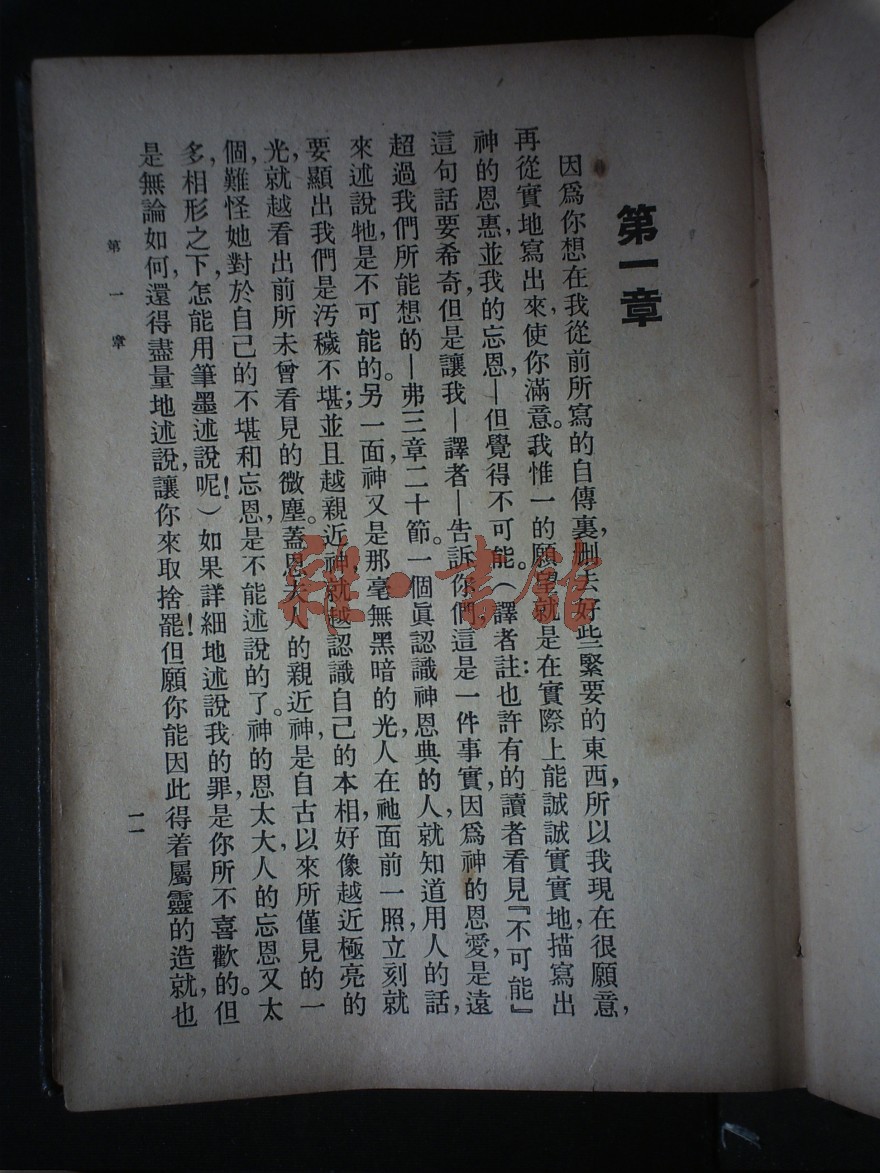 第一章
因爲你想在我從前所寫的自傳裏，刪去好些緊要的東西，所以我現在很願意，
再從實地寫出來，使你滿意。我惟一的願望就是在實際上能誠誠實實地，描寫出
神的恩惠，並我的忘恩，—但覺得不可能。（譯者註：也許有的讀者看見『不可能』
這句話要希奇，但是讓我—譯者—告訴你們，這是一件事實，因爲神的恩愛，是遠
超過我們所能想的—弗三章二十節。一個眞認識神恩典的人，就知道用人的話，
來述說牠，是不可能的。另一面，神又是那毫無黑暗的光，人在祂面前一照，立刻就
要顯出我們是汚穢不堪；並且越親近神，就越認識自己的本相，好像越近極亮的
光，就越看出前所未曾看見的微塵。蓋恩夫人的親近神，是自古以來所僅見的一
個，難怪她對於自己的不堪和忘恩，是不能述說的了。神的恩太大，人的忘恩又太
多，相形之下，怎能用筆墨述說呢！）如果詳細地述說我的罪，是你所不喜歡的。但
是無論如何，還得盡量地述說，讓你來取捨罷！但願你能因此得着屬靈的造就，也
第一章
一一
雜·書館